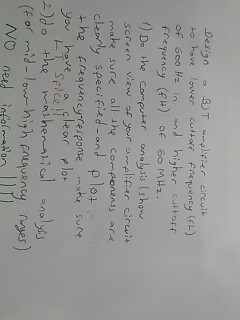 Design a BJT amplifier circuit
to have lower cuttoff frequency (FL)
of 600Hz in and higher cuttoff
frequency (FH) of 60 MHz.
1) Do the computer analysis (show
screen view of your amplifier circuit
make sure all the components are
clearly specified - and plot
the frequency response make sure
you have a clear plot
LTspice!!
2) do the mathematical analysis
(for mid-low-high frequency ranges)
NO need information !!!!